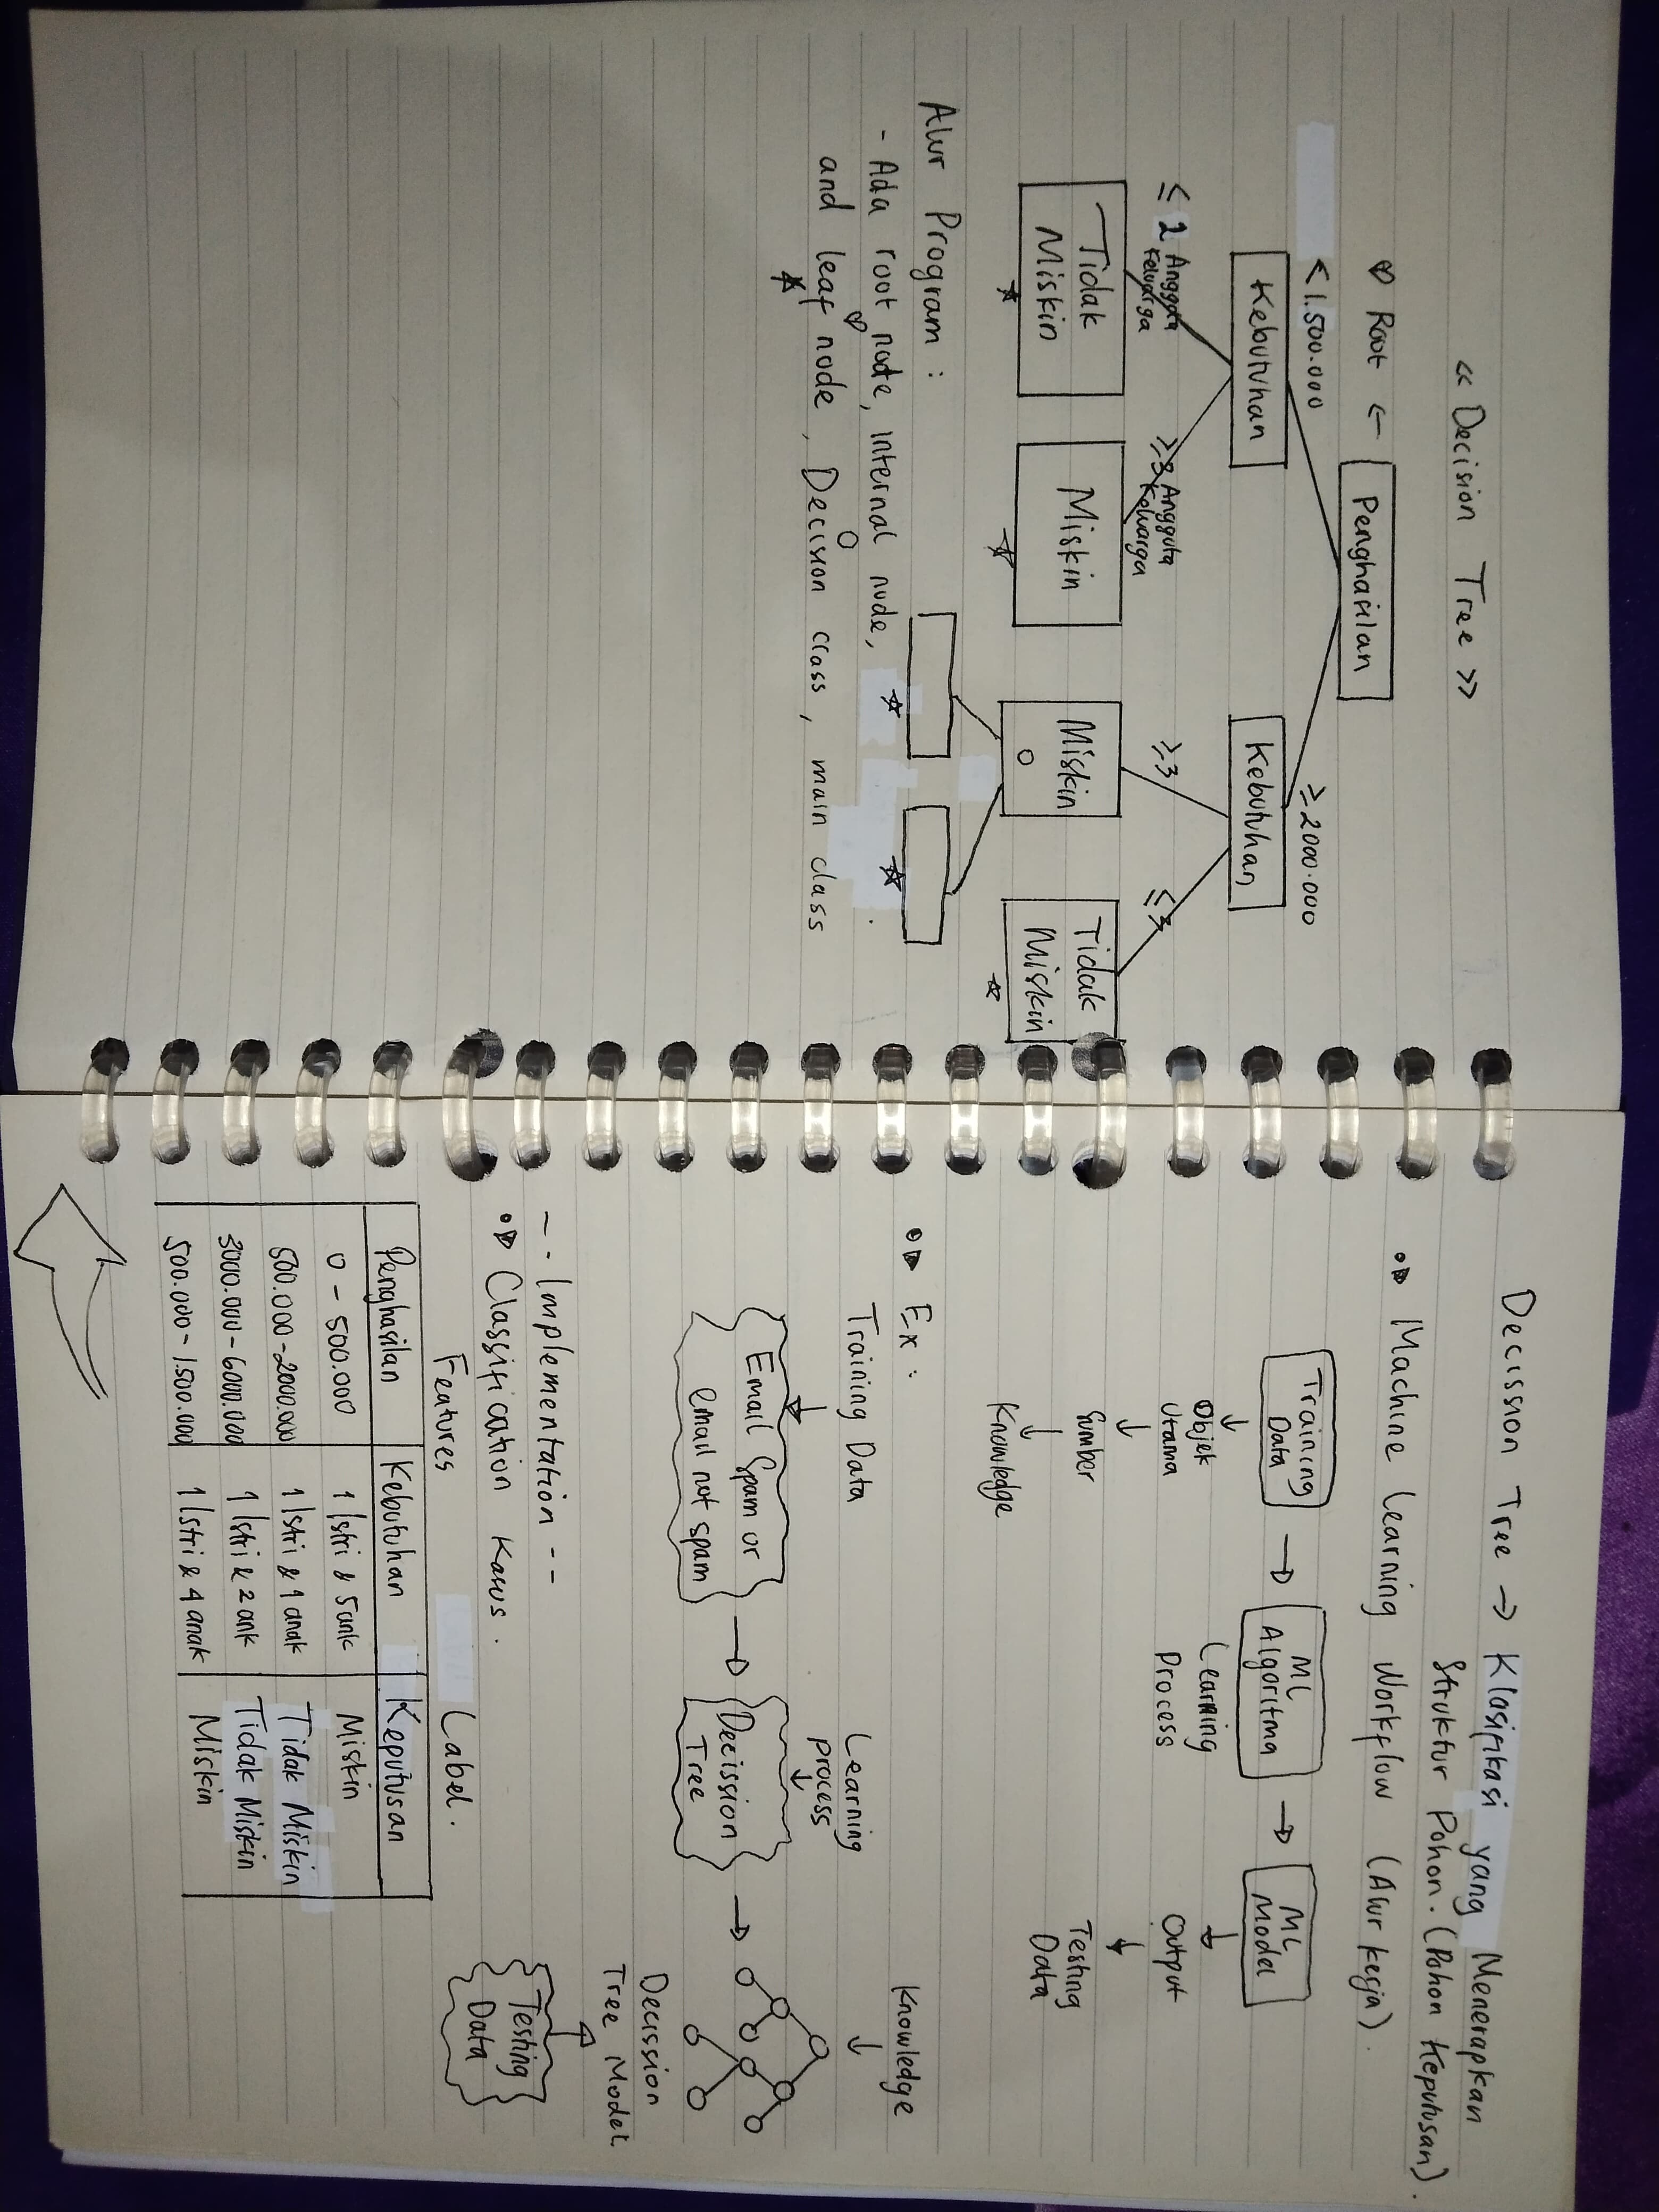 << Decision Tree >>
Root ← Penghasilan
< 1.500.000
≥ 2000.000
Kebutuhan
Kebutuhan
≤ 2 Anggota Keluarga
≥ 3 Anggota Keluarga
≥ 3
≤ 3
Tidak Miskin
Miskin
Miskin
Tidak Miskin
Alur Program :
- Ada root node, internal node,
and leaf node, Decision class, main class
Decission Tree → Klasifikasi yang Menerapkan
Struktur Pohon. (Pohon Keputusan).
Machine Learning Workflow (Alur kerja).
Training Data → ML Algoritma → ML Model
↓
Objek Utama
↓
Sumber
↓
Knowledge
Learning Process
↓
Output
↓
Testing Data
Ex :
Training Data
↓
Email Spam or
email not spam
→
Learning process
↓
Decission Tree
→
Knowledge
↓
Decission
Tree Model.
Testing Data
-- Implementation --
Classification Kasus.
Features Label.
Penghasilan Kebutuhan Keputusan
0 - 500.000 1 Istri & 5 ank Miskin
500.000 - 2000.000 1 Istri & 1 anak Tidak Miskin
3000.000 - 6000.000 1 Istri & 2 ank Tidak Miskin
500.000 - 1.500.000 1 Istri & 4 anak Miskin